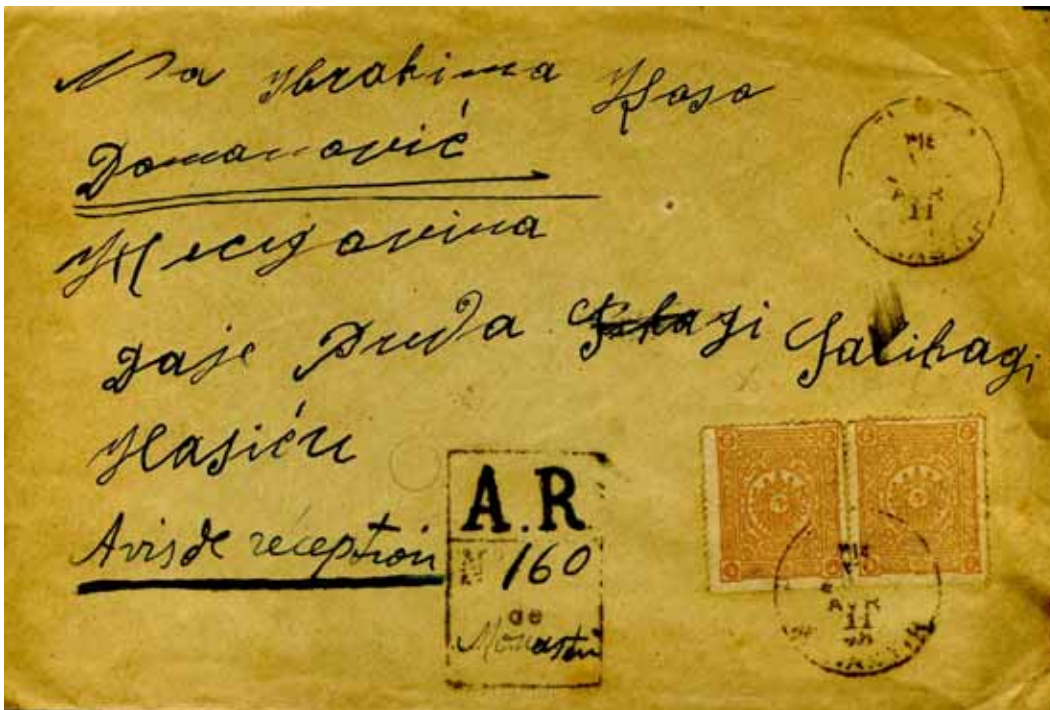 Na Ibrahima Hoso
Domanović
Hercegovina
Daje Duda Salihagi
Hasiću
Avis de réception
A.R
No 160
de
Monastir
AVR
11
AVR
11